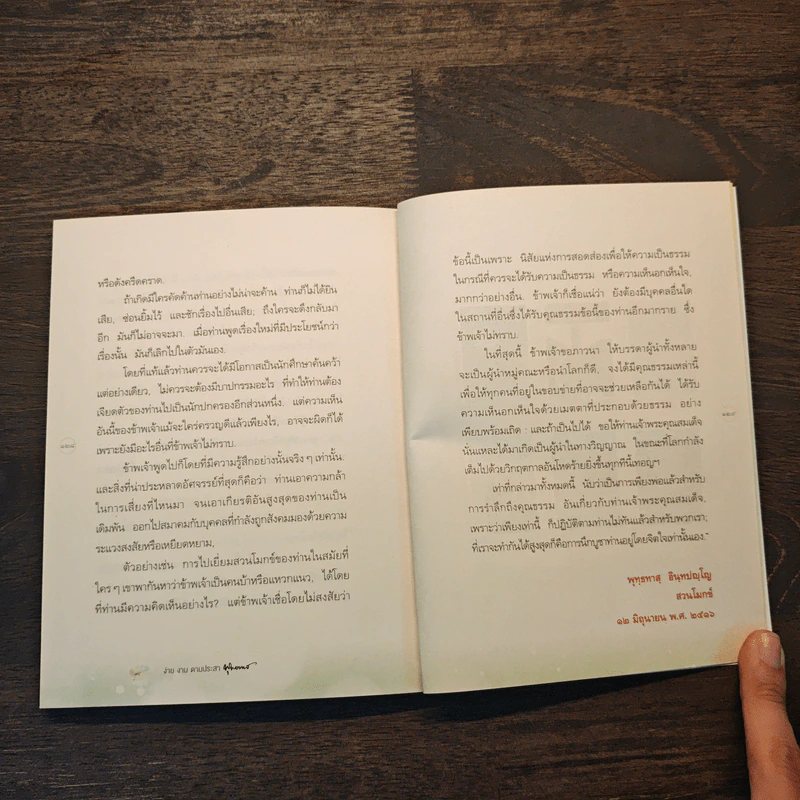 หรือตังครืดคราด.
ถ้าเกิดมีใครคัดค้านท่านอย่างไม่น่าจะค้าน ท่านก็ไม่ได้ยิน
เสีย, ซ่อนยิ้มไว้ และชักเรื่องไปอื่นเสีย; ถึงใครจะดึงกลับมา
อีก มันก็ไม่อาจจะมา. เมื่อท่านพูดเรื่องใหม่ที่มีประโยชน์กว่า
เรื่องนั้น มันก็เลิกไปในตัวมันเอง.
โดยที่แท้แล้วท่านควรจะได้มีโอกาสเป็นนักศึกษาค้นคว้า
แต่อย่างเดียว, ไม่ควรจะต้องมีบาปกรรมอะไร ที่ทำให้ท่านต้อง
เจียดตัวของท่านไปเป็นนักปกครองอีกส่วนหนึ่ง. แต่ความเห็น
อันนี้ของข้าพเจ้าแม้จะใคร่ครวญดีแล้วเพียงไร, อาจจะผิดก็ได้
เพราะยังมีอะไรอื่นที่ข้าพเจ้าไม่ทราบ.
ข้าพเจ้าพูดไปก็โดยที่มีความรู้สึกอย่างนั้นจริง ๆ เท่านั้น;
และสิ่งที่น่าประหลาดอัศจรรย์ที่สุดก็คือว่า ท่านเอาความกล้า
ในการเสี่ยงที่ไหนมา จนเอาเกียรติอันสูงสุดของท่านเป็น
เดิมพัน ออกไปสมาคมกับบุคคลที่กำลังถูกสังคมมองด้วยความ
ระแวงสงสัยหรือเหยียดหยาม,
ตัวอย่างเช่น การไปเยี่ยมสวนโมกข์ของท่านในสมัยที่
ใคร ๆ เขาพากันหาว่าข้าพเจ้าเป็นคนบ้าหรือแหวกแนว, ได้โดย
ที่ท่านมีความคิดเห็นอย่างไร? แต่ข้าพเจ้าเชื่อโดยไม่สงสัยว่า
ง่าย งาม ตามประสา
ข้อนี้เป็นเพราะ นิสัยแห่งการสอดส่องเพื่อให้ความเป็นธรรม
ในกรณีที่ควรจะได้รับความเป็นธรรม หรือความเห็นอกเห็นใจ,
มากกว่าอย่างอื่น. ข้าพเจ้าก็เชื่อแน่ว่า ยังต้องมีบุคคลอื่นใด
ในสถานที่อื่นซึ่งได้รับคุณธรรมข้อนี้ของท่านอีกมากราย ซึ่ง
ข้าพเจ้าไม่ทราบ.
ในที่สุดนี้ ข้าพเจ้าขอภาวนา ให้บรรดาผู้นำทั้งหลาย
จะเป็นผู้นำหมู่คณะหรือนำโลกก็ดี, จงได้มีคุณธรรมเหล่านี้
เพื่อให้ทุกคนที่อยู่ในขอบข่ายที่อาจจะช่วยเหลือกันได้ ได้รับ
ความเห็นอกเห็นใจด้วยเมตตาที่ประกอบด้วยธรรม อย่าง
เพียบพร้อมเถิด : และถ้าเป็นไปได้ ขอให้ท่านเจ้าพระคุณสมเด็จ
นั่นแหละได้มาเกิดเป็นผู้นำในทางวิญญาณ ในขณะที่โลกกำลัง
เต็มไปด้วยวิกฤตกาลอันโหดร้ายยิ่งขึ้นทุกทีนี้เทอญฯ
เท่าที่กล่าวมาทั้งหมดนี้ นับว่าเป็นการเพียงพอแล้วสำหรับ
การรำลึกถึงคุณธรรม อันเกี่ยวกับท่านเจ้าพระคุณสมเด็จ,
เพราะว่าเพียงเท่านี้ ก็ปฏิบัติตามท่านไม่ทันแล้วสำหรับพวกเรา;
ที่เราจะทำกันได้สูงสุดก็คือการนึกบูชาท่านอยู่โดยจิตใจเท่านั้นเอง."
พุทฺธทาสฺ อินฺทปญฺโญ
สวนโมกข์
๑๒ มิถุนายน พ.ศ. ๒๕๑๖